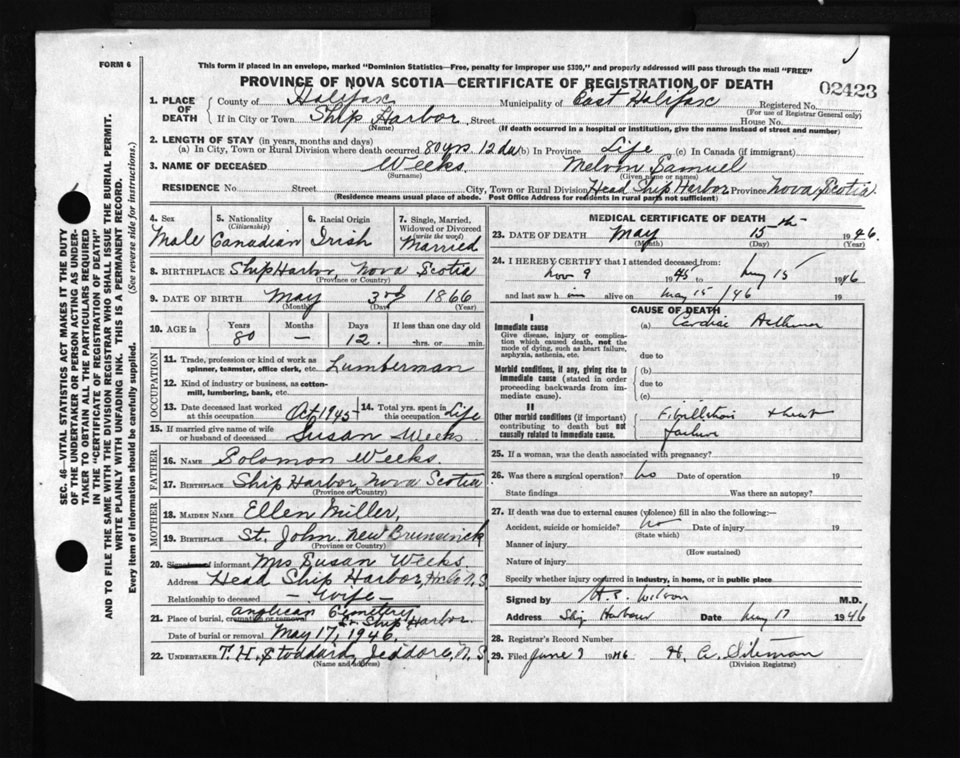 FORM 6
This form if placed in an envelope, marked "Dominion Statistics—Free, penalty for improper use $300," and properly addressed will pass through the mail "FREE"
PROVINCE OF NOVA SCOTIA—CERTIFICATE OF REGISTRATION OF DEATH
02423
1. PLACE OF DEATH
County of Halifax Municipality of East Halifax Registered No.
(For use of Registrar General only)
If in City or Town Ship Harbor, Street House No.
(Name) (If death occurred in a hospital or institution, give the name instead of street and number)
2. LENGTH OF STAY (in years, months and days)
(a) In City, Town or Rural Division where death occurred 80 yrs. 12 da (b) In Province Life (c) In Canada (if immigrant)
3. NAME OF DECEASED Weeks. Melvin Samuel
(Surname) (Given name or names)
RESIDENCE No. Street City, Town or Rural Division Head Ship Harbor Province Nova Scotia
(Residence means usual place of abode. Post Office Address for residents in rural parts not sufficient)
4. Sex
Male
5. Nationality
(Citizenship)
Canadian
6. Racial Origin
Irish
7. Single, Married, Widowed or Divorced
(write the word)
Married
8. BIRTHPLACE Ship Harbor, Nova Scotia
(Province or Country)
9. DATE OF BIRTH May 3rd 1866
(Month) (Day) (Year)
10. AGE in
Years Months Days If less than one day old
80 — 12. hrs. or min.
OCCUPATION
11. Trade, profession or kind of work as spinner, teamster, office clerk, etc. Lumberman
12. Kind of industry or business, as cotton-mill, lumbering, bank, etc.
13. Date deceased last worked at this occupation Oct, 1945
14. Total yrs. spent in this occupation Life
15. If married give name of wife or husband of deceased Susan Weeks
FATHER
16. NAME Solomon Weeks
17. BIRTHPLACE Ship Harbor, Nova Scotia
(Province or Country)
MOTHER
18. MAIDEN NAME Ellen Miller,
19. BIRTHPLACE St. John. New Brunsinck
(Province or Country)
20. Signature of informant Mrs Susan Weeks.
Address Head Ship Harbor, Hfx Co N.S.
Relationship to deceased — Wife —
21. Place of burial, cremation or removal Anglican Cemetery
Ship Harbor.
Date of burial or removal May 17, 1946.
22. UNDERTAKER T. H. Stoddard, Jeddore, N.S
(Name and address)
MEDICAL CERTIFICATE OF DEATH
23. DATE OF DEATH May 15th 1946.
(Month) (Day) (Year)
24. I HEREBY CERTIFY that I attended deceased from:
Nov 9 1945 to May 15 1946
and last saw him alive on May 15/46 19
CAUSE OF DEATH
I
Immediate cause
Give disease, injury or complication which caused death, not the mode of dying, such as heart failure, asphyxia, asthenia, etc.
(a) Cardiac Asthma
due to
Morbid conditions, if any, giving rise to immediate cause (stated in order proceeding backwards from immediate cause).
(b)
due to
(c)
II
Other morbid conditions (if important) contributing to death but not causally related to immediate cause.
Fibrillation & heart
failure
25. If a woman, was the death associated with pregnancy?
26. Was there a surgical operation? No Date of operation 19
State findings Was there an autopsy?
27. If death was due to external causes (violence) fill in also the following:—
Accident, suicide or homicide? No Date of injury 19
(State which)
Manner of injury
(How sustained)
Nature of injury
Specify whether injury occurred in industry, in home, or in public place
Signed by Wilson M.D.
Address Ship Harbour Date May 17 1946
28. Registrar's Record Number
29. Filed June 1946 H. A. Siteman
(Division Registrar)
SEC. 46—VITAL STATISTICS ACT MAKES IT THE DUTY
OF THE UNDERTAKER OR PERSON ACTING AS UNDER-
TAKER TO OBTAIN ALL THE PARTICULARS REQUIRED
IN THE "CERTIFICATE OF REGISTRATION OF DEATH"
AND TO FILE THE SAME WITH THE DIVISION REGISTRAR WHO SHALL ISSUE THE BURIAL PERMIT.
WRITE PLAINLY WITH UNFADING INK. THIS IS A PERMANENT RECORD.
Every item of information should be carefully supplied. (See reverse side for instructions.)